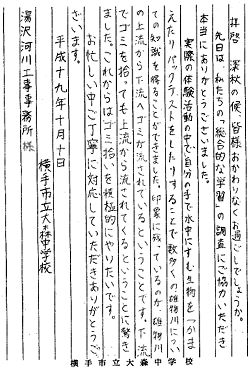 拝啓 深秋の候 皆様おかわりなくお過ごしでしょうか。
先日は、私たちの「総合的な学習」の調査にご協力いただき
本当にありがとうございました。
実際の体験活動の中で自分の手で水中にすむ生物をつかま
えたりパックテストをしたりすることで数多くの雄物川につい
ての知識を得ることができました。印象に残っているのが雄物川
の上流から下流へゴミが流されているということです。下流
でゴミを拾っても上流から流されてくるということに驚き
ました。これからはゴミ拾いを積極的にやりたいです。
お忙しい中ご丁寧に対応していただきありがとうご
ざいます。
平成十九年十月十日
横手市立大森中学校
湯沢河川工事事務所様
横手市立大森中学校